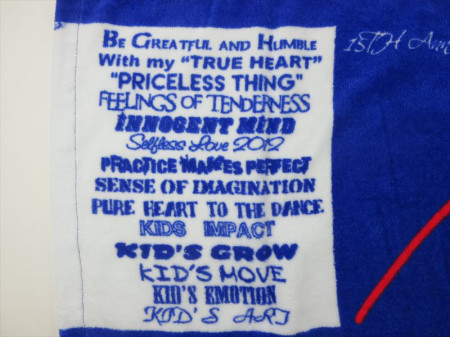 BE GREATFUL AND HUMBLE
With my "TRUE HEART"
"PRICELESS THING"
FEELINGS OF TENDERNESS
INNOCENT MIND
Selfless Love 2012
PRACTICE MAKES PERFECT
SENSE OF IMAGINATION
PURE HEART TO THE DANCE.
KIDS IMPACT
KID'S GROW
KID'S MOVE
KID'S EMOTION
KID'S ART
15TH